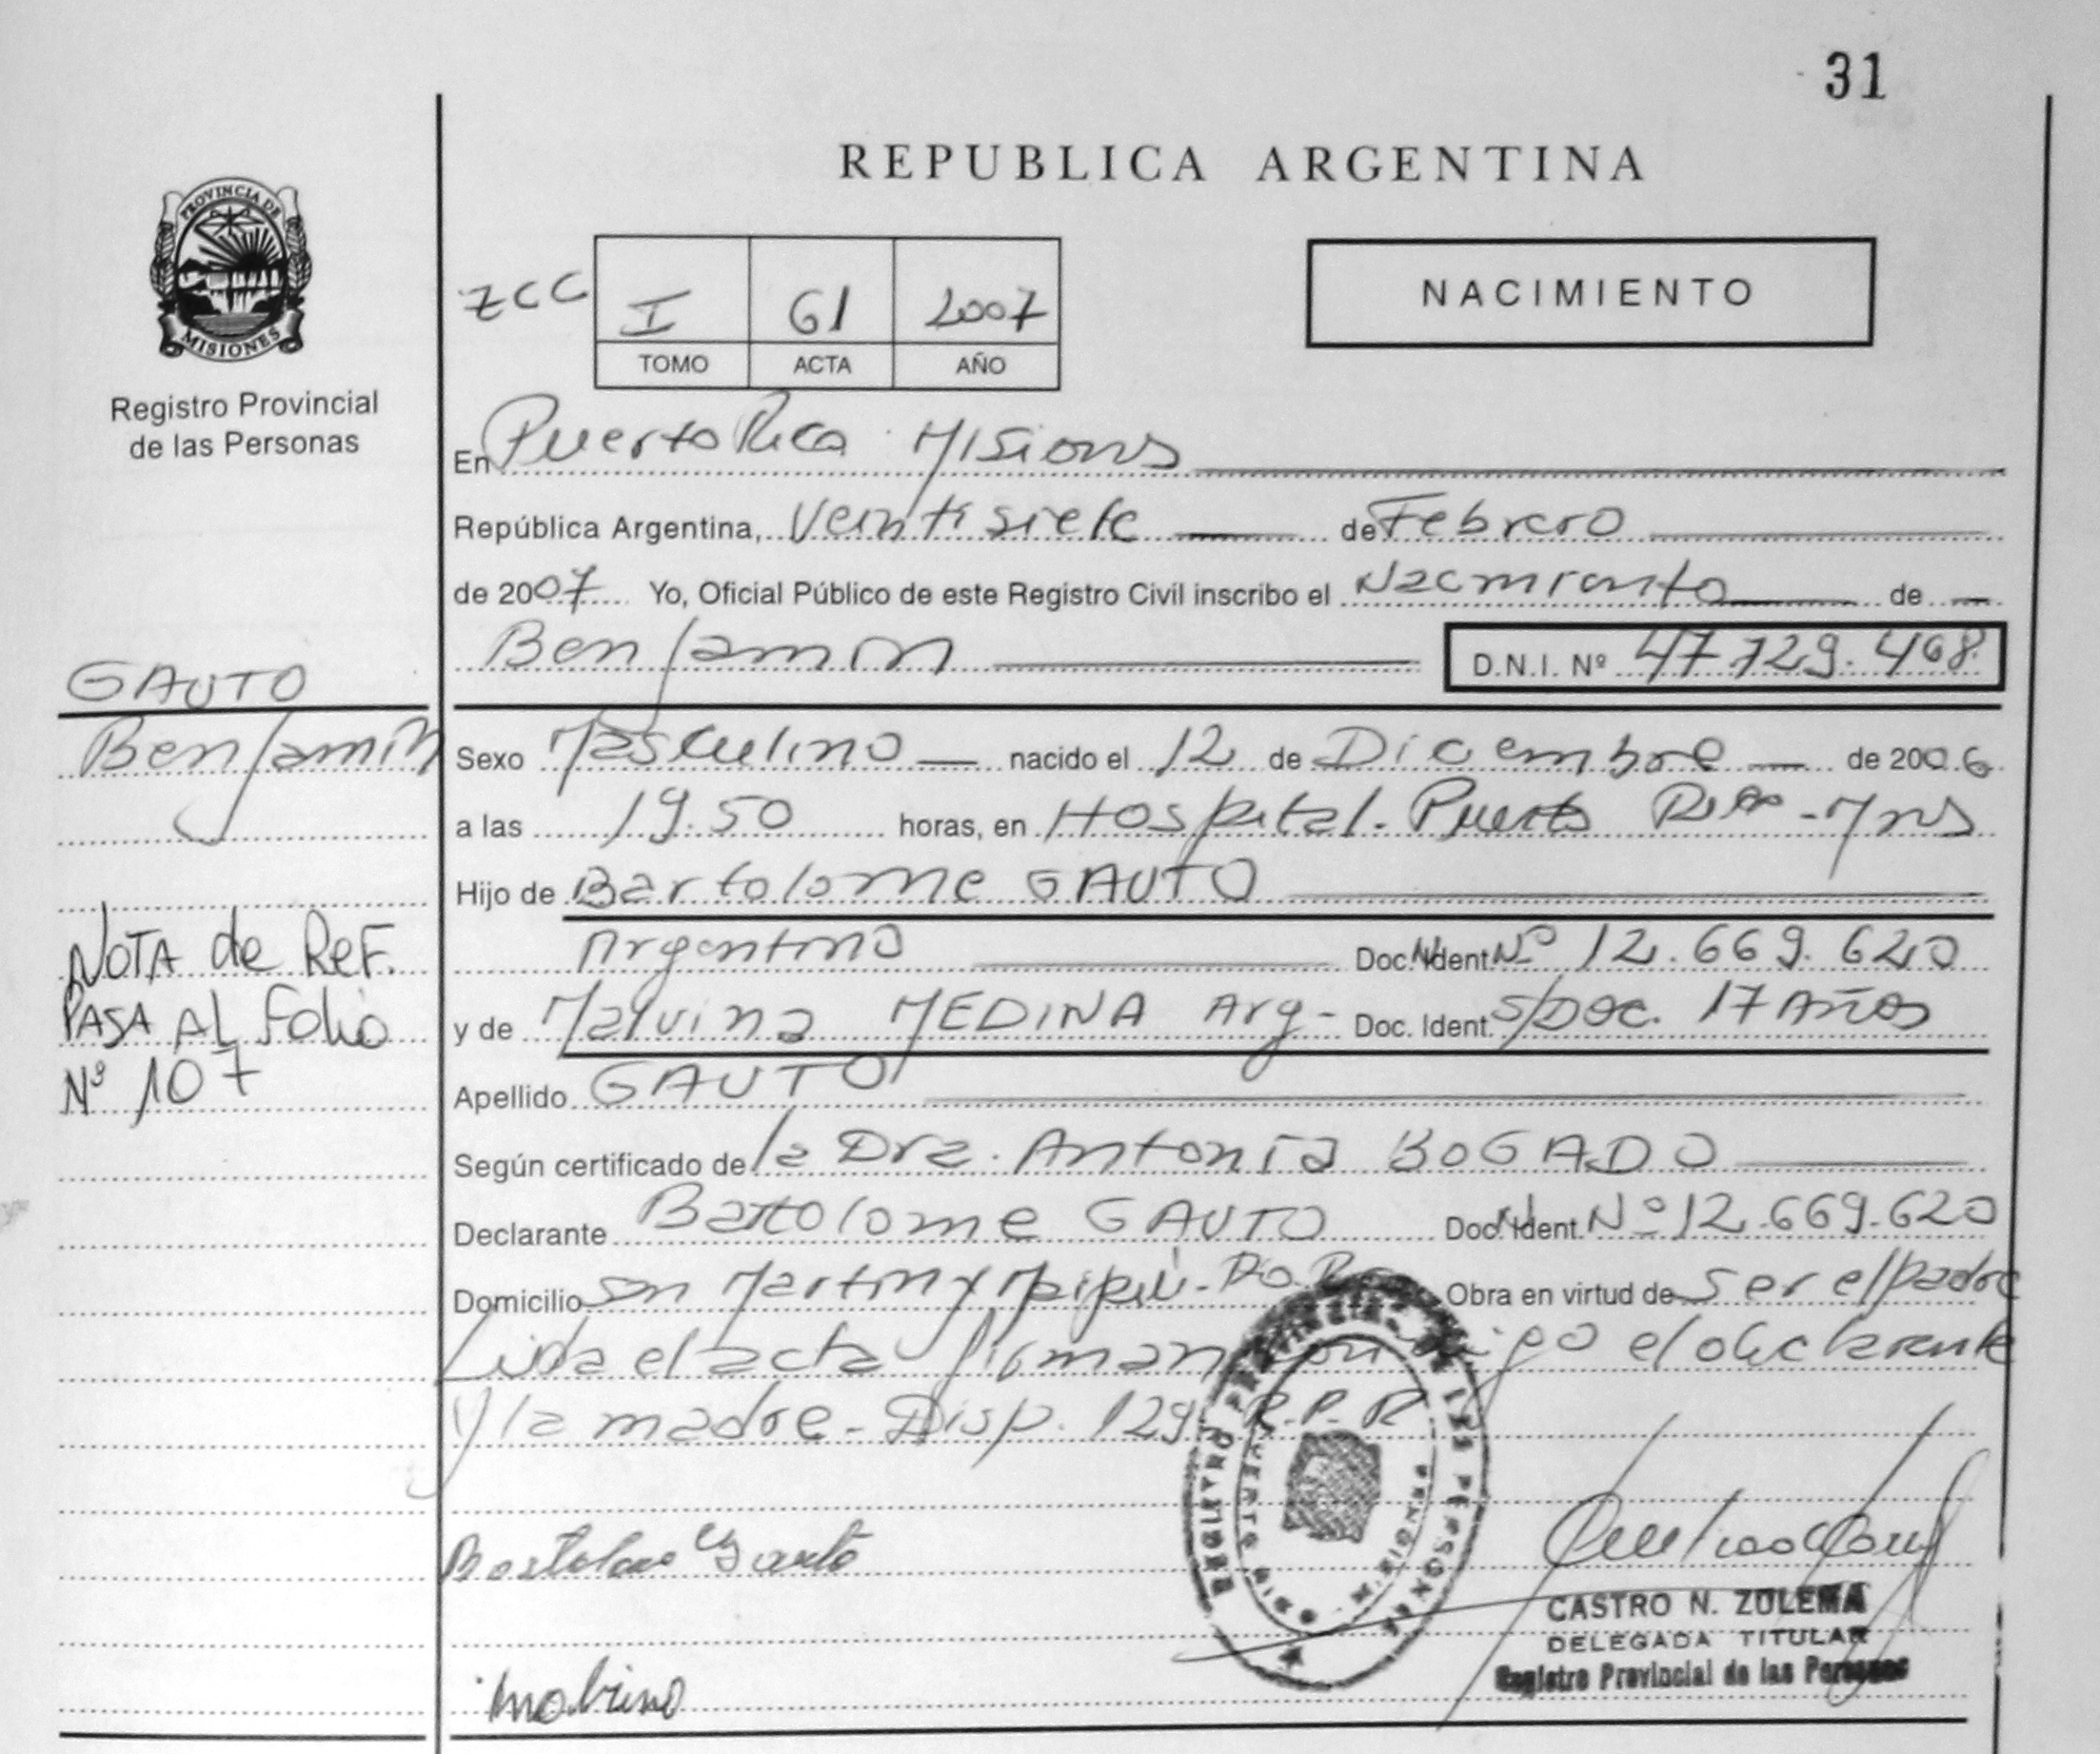 31
REPUBLICA ARGENTINA
PROVINCIA DE
MISIONES
Registro Provincial
de las Personas
ZCC
I 61 2007
TOMO ACTA AÑO
NACIMIENTO
En Puerto Rico Misions
República Argentina, Veintisiete de Febrero
de 2007 Yo, Oficial Público de este Registro Civil inscribo el Nacimiento de
Benjamin D.N.I. Nº 47.729.468
GAUTO
Benjamin
Sexo Masculino nacido el 12 de Diciembre de 2006
a las 19.50 horas, en Hospital. Puerto Rico - Mns
Hijo de Bartolome GAUTO
Argentino Doc. Ident. Nº 12.669.620
y de Malvina MEDINA Arg- Doc. Ident. S/Doc. 17 Años
NOTA de REF.
PASA AL Folio
Nº 107
Apellido GAUTO
Según certificado de la Dra. Antonia BOGADO
Declarante Bartolome GAUTO Doc. Ident. Nº 12.669.620
Domicilio San Martin y Maipú - Obra en virtud de ser el padre
Lida el acta firman el declarante
y la madre - Disp. 129 R.P.P
REGISTRO PROVINCIAL DE LAS PERSONAS
PUERTO RICO MISIONES
Bartolome Gauto
CASTRO N. ZULEMA
DELEGADA TITULAR
Registro Provincial de las Personas